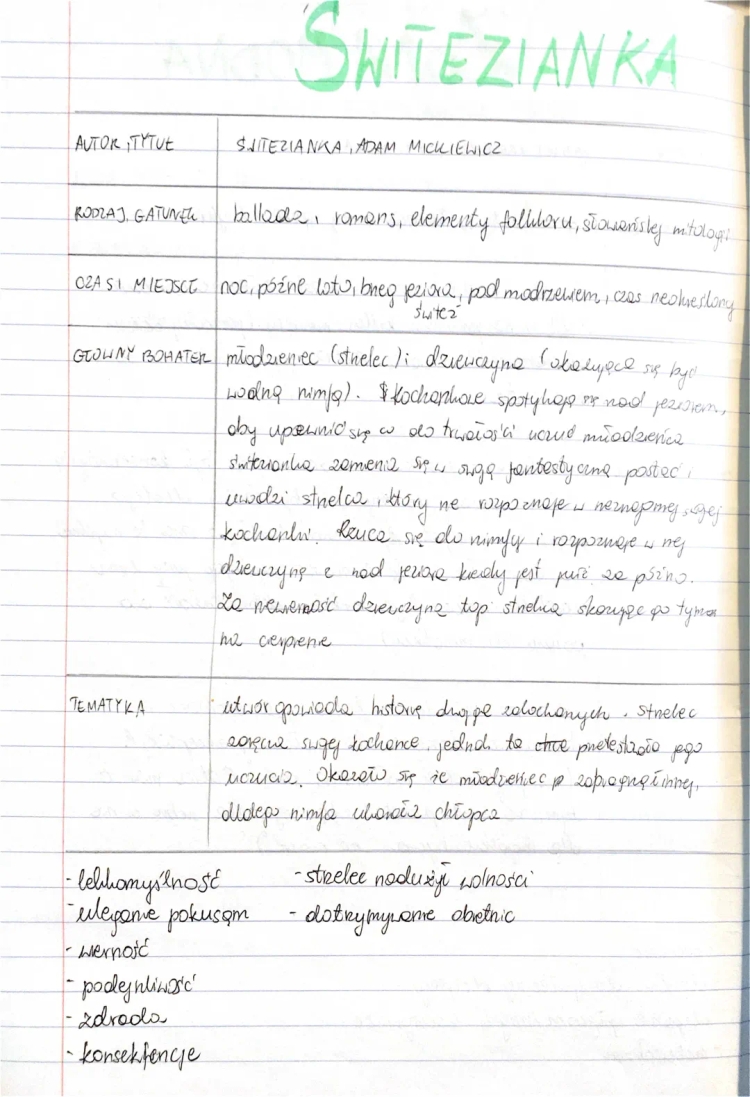 ŚWITEZIANKA
AUTOR, TYTUŁ ŚWITEZIANKA, ADAM MICKIEWICZ
RODZAJ, GATUNEK ballada, romans, elementy folkloru, słowańskiej mitologi
CZAS I MIEJSCE noc, późne lato, brzeg jeziora, pod modrzewiem, czas nieokreślony
świteź
GŁÓWNY BOHATER młodzieniec (strzelec) i dziewczyna (okazująca się być
wodną nimfą). Kochankowie spotykają się nad jeziorem,
aby upewnić się co do trwałości uczuć młodzieńca
świtezianka zamienia się w swoją fantastyczną postać i
uwodzi strzelca, który nie rozpoznaje w nieznajomej swojej
kochanki. Rzuca się do nimfy i rozpoznaje w niej
dziewczynę z nad jeziora kiedy jest już za późno.
Za niewierność dziewczyna topi strzelca skazując go tym
na cierpienie
TEMATYKA utwór opowiada historię dwojga zakochanych. strzelec
zaręcza swojej kochance, jednak ta chce przetestować jego
uczucia. Okazało się że młodzieniec zapragnął innej,
dlatego nimfa ukarała chłopca
- lekkomyślność - strzelec nadużył wolności
- uleganie pokusom - dotrzymywanie obietnic
- wierność
- podejrzliwość
- zdrada
- konsekfencje